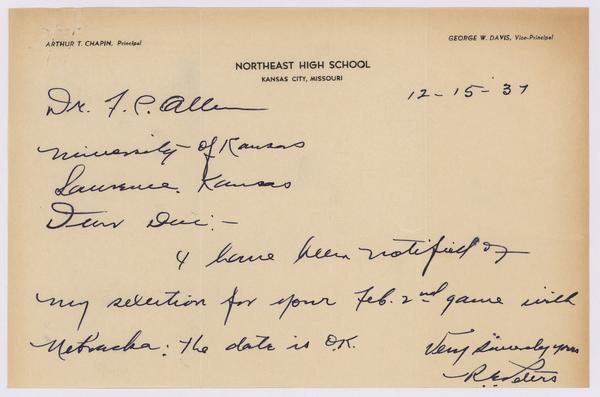 ARTHUR T. CHAPIN, Principal
GEORGE W. DAVIS, Vice-Principal
NORTHEAST HIGH SCHOOL
KANSAS CITY, MISSOURI
12-15-37
Dr. F. C. Allen
University of Kansas
Lawrence, Kansas
Dear Doc:-
I have been notified of
my selection for your Feb. 2nd game with
Nebraska. The date is O.K.
Very Sincerely yours
R. E. Peters